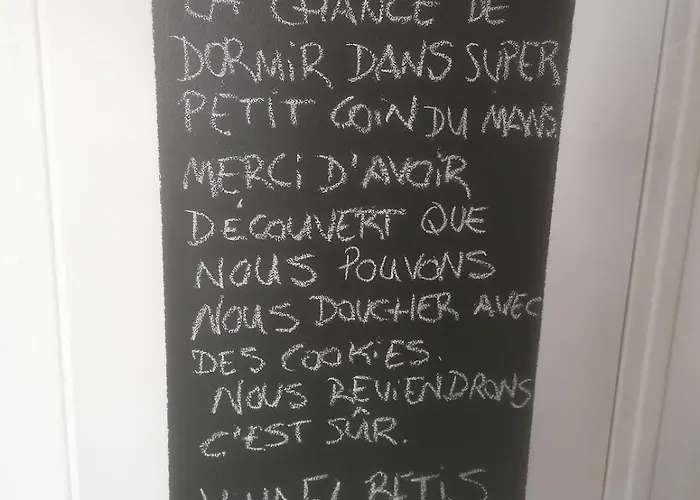 LA CHANCE DE
DORMIR DANS SUPER
PETIT COIN DU MANS
MERCI D'AVOIR
DÉCOUVERT QUE
NOUS POUVONS
NOUS DOUCHER AVEC
DES COOKIES.
NOUS REVIENDRONS
C'EST SÛR.
BETIS